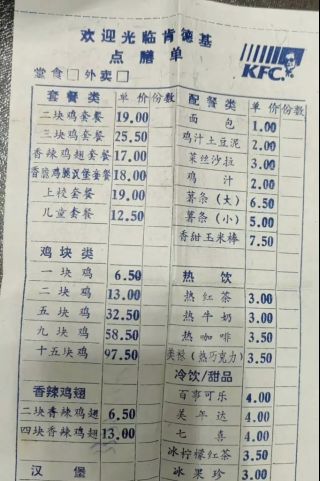 欢迎光临肯德基
点膳单
堂食□外卖□
KFC.
套餐类 单价 份数
二块鸡套餐 19.00
三块鸡套餐 25.50
香辣鸡翅套餐 17.00
香脆鸡腿汉堡套餐 18.00
上校套餐 19.00
儿童套餐 12.50
鸡块类
一块鸡 6.50
二块鸡 13.00
五块鸡 32.50
九块鸡 58.50
十五块鸡 97.50
香辣鸡翅
二块香辣鸡翅 6.50
四块香辣鸡翅 13.00
汉堡
配餐类 单价 份数
面包 1.00
鸡汁土豆泥 2.00
菜丝沙拉 3.00
鸡汁 2.00
薯条(大) 6.50
薯条(小) 5.00
香甜玉米棒 7.50
热饮
热红茶 3.00
热牛奶 3.00
热咖啡 3.50
美禄(热巧克力) 3.50
冷饮/甜品
百事可乐 4.00
美年达 4.00
七喜 4.00
冰柠檬红茶 3.50
冰果珍 3.00